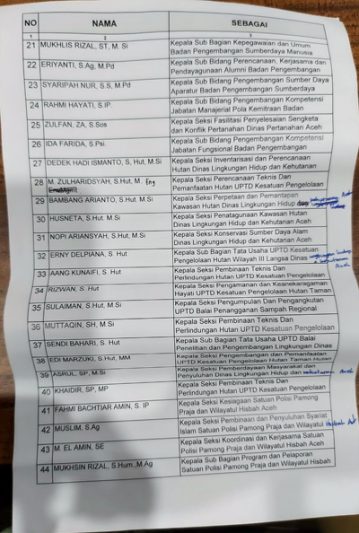 NO NAMA SEBAGAI
1 2 3
21 MUKHLIS RIZAL, ST, M. Si Kepala Sub Bagian Kepegawaian dan Umum
Badan Pengembangan Sumberdaya Manusia
22 ERIYANTI, S.Ag, M.Pd Kepala Sub Bidang Perencanaan, Kerjasama dan
Pendayagunaan Alumni Badan Pengembangan
23 SYARIPAH NUR, S.S, M.Pd Kepala Sub Bidang Pengembangan Sumber Daya
Aparatur Badan Pengembangan Sumberdaya
24 RAHMI HAYATI, S.IP. Kepala Sub Bidang Pengembangan Kompetensi
Jabatan Manajerial Pola Kemitraan Badan
25 ZULFAN, ZA, S.Sos Kepala Seksi Fasilitasi Penyelesaian Sengketa
dan Konflik Pertanahan Dinas Pertanahan Aceh
26 IDA FARIDA, S.Psi. Kepala Sub Bidang Pengembangan Kompetensi
Jabatan Fungsional Badan Pengembangan
27 DEDEK HADI ISMANTO, S, Hut, M.Si Kepala Seksi Inventarisasi dan Perencanaan
Hutan Dinas Lingkungan Hidup dan Kehutanan
28 M. ZULHARIDSYAH, S.Hut, M. Eng Kepala Seksi Perencanaan Teknis Dan
Pemanfaatan Hutan UPTD Kesatuan Pengelolaan
29 BAMBANG ARIANTO, S.Hut, M.Si Kepala Seksi Perpetaan dan Pemantapan
Kawasan Hutan Dinas Lingkungan Hidup
30 HUSNETA, S.Hut, M.Si Kepala Seksi Penatagunaan Kawasan Hutan
Dinas Lingkungan Hidup dan Kehutanan Aceh
31 NOPI ARIANSYAH, S.Hut, M.Si Kepala Seksi Konservasi Sumber Daya Alam
Dinas Lingkungan Hidup dan Kehutanan Aceh
32 ERNY DELPIANA, S. Hut Kepala Sub Bagian Tata Usaha UPTD Kesatuan
Pengelolaan Hutan Wilayah III Langsa Dinas
33 AANG KUNAIFI, S. Hut Kepala Seksi Pembinaan Teknis Dan
Perlindungan Hutan UPTD Kesatuan Pengelolaan
34 RIZWAN, S. Hut Kepala Seksi Pengamanan dan Keanekaragaman
Hayati UPTD Kesatuan Pengelolaan Hutan
35 SULAIMAN, S.Hut, M.Si Kepala Seksi Pengumpulan Dan Pengangkutan
UPTD Balai Penanganan Sampah Regional
36 MUTTAQIN, SH, M.Si Kepala Seksi Pembinaan Teknis Dan
Perlindungan Hutan UPTD Kesatuan Pengelolaan
37 SENDI BAHARI, S. Hut Kepala Sub Bagian Tata Usaha UPTD Balai
Penelitian dan Pengembangan Lingkungan Dinas
38 EDI MARZUKI, S.Hut, MM Kepala Seksi Pengembangan dan Pemanfaatan
UPTD Kesatuan Pengelolaan Hutan Taman Hutan
39 ASRUL, SP, M.Si Kepala Seksi Pemberdayaan Masyarakat dan
Penyuluhan Dinas Lingkungan Hidup dan
40 KHAIDIR, SP, MP Kepala Seksi Pembinaan Teknis Dan
Perlindungan Hutan UPTD Kesatuan Pengelolaan
41 FAHMI BACHTIAR AMIN, S. IP Kepala Seksi Kesiagaan Satuan Polisi Pamong
Praja dan Wilayatul Hisbah Aceh
42 MUSLIM, S.Ag Kepala Seksi Pembinaan dan Penyuluhan Syariat
Islam Satuan Polisi Pamong Praja dan Wilayatul
43 M. EL AMIN, SE Kepala Seksi Koordinasi dan Kerjasama Satuan
Polisi Pamong Praja dan Wilayatul Hisbah
44 MUKHSIN RIZAL, S.Hum.,M.Ag Kepala Sub Bagian Program dan Pelaporan
Satuan Polisi Pamong Praja dan Wilayatul Hisbah